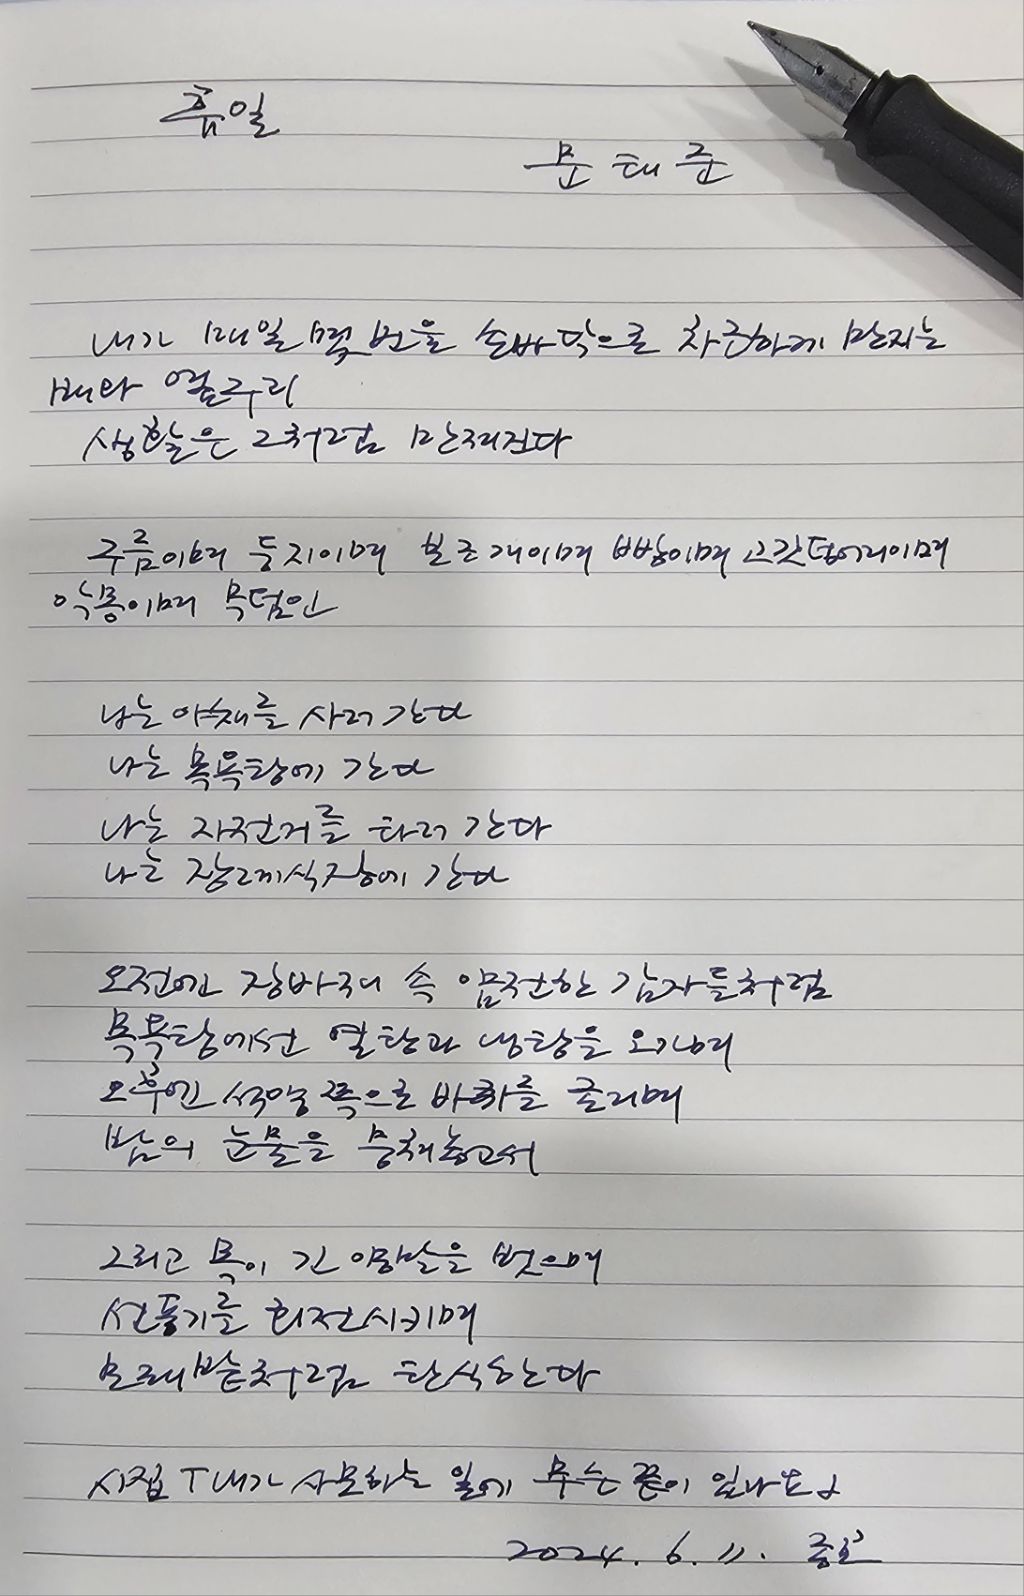 휴일
문태준
내가 매일 몇 번을 손바닥으로 차근하게 만지는
배와 옆구리
생활은 그처럼 만져진다
구름이며 둥지이며 보조개이며 빵이며 고깃덩어리이며
악몽이며 무덤인
나는 야채를 사러 간다
나는 목욕탕에 간다
나는 자전거를 타러 간다
나는 장례식장에 간다
오전엔 장바구니 속 얌전한 감자들처럼
목욕탕에선 열탕과 냉탕을 오가며
오후엔 석양 쪽으로 바퀴를 굴리며
밤의 눈물을 뭉쳐놓고서
그리고 목이 긴 양말을 벗으며
선풍기를 회전시키며
모래밭처럼 탄식한다
시집 「내가 사모하는 일에 무슨 끝이 있나요」
2024. 6. 11.